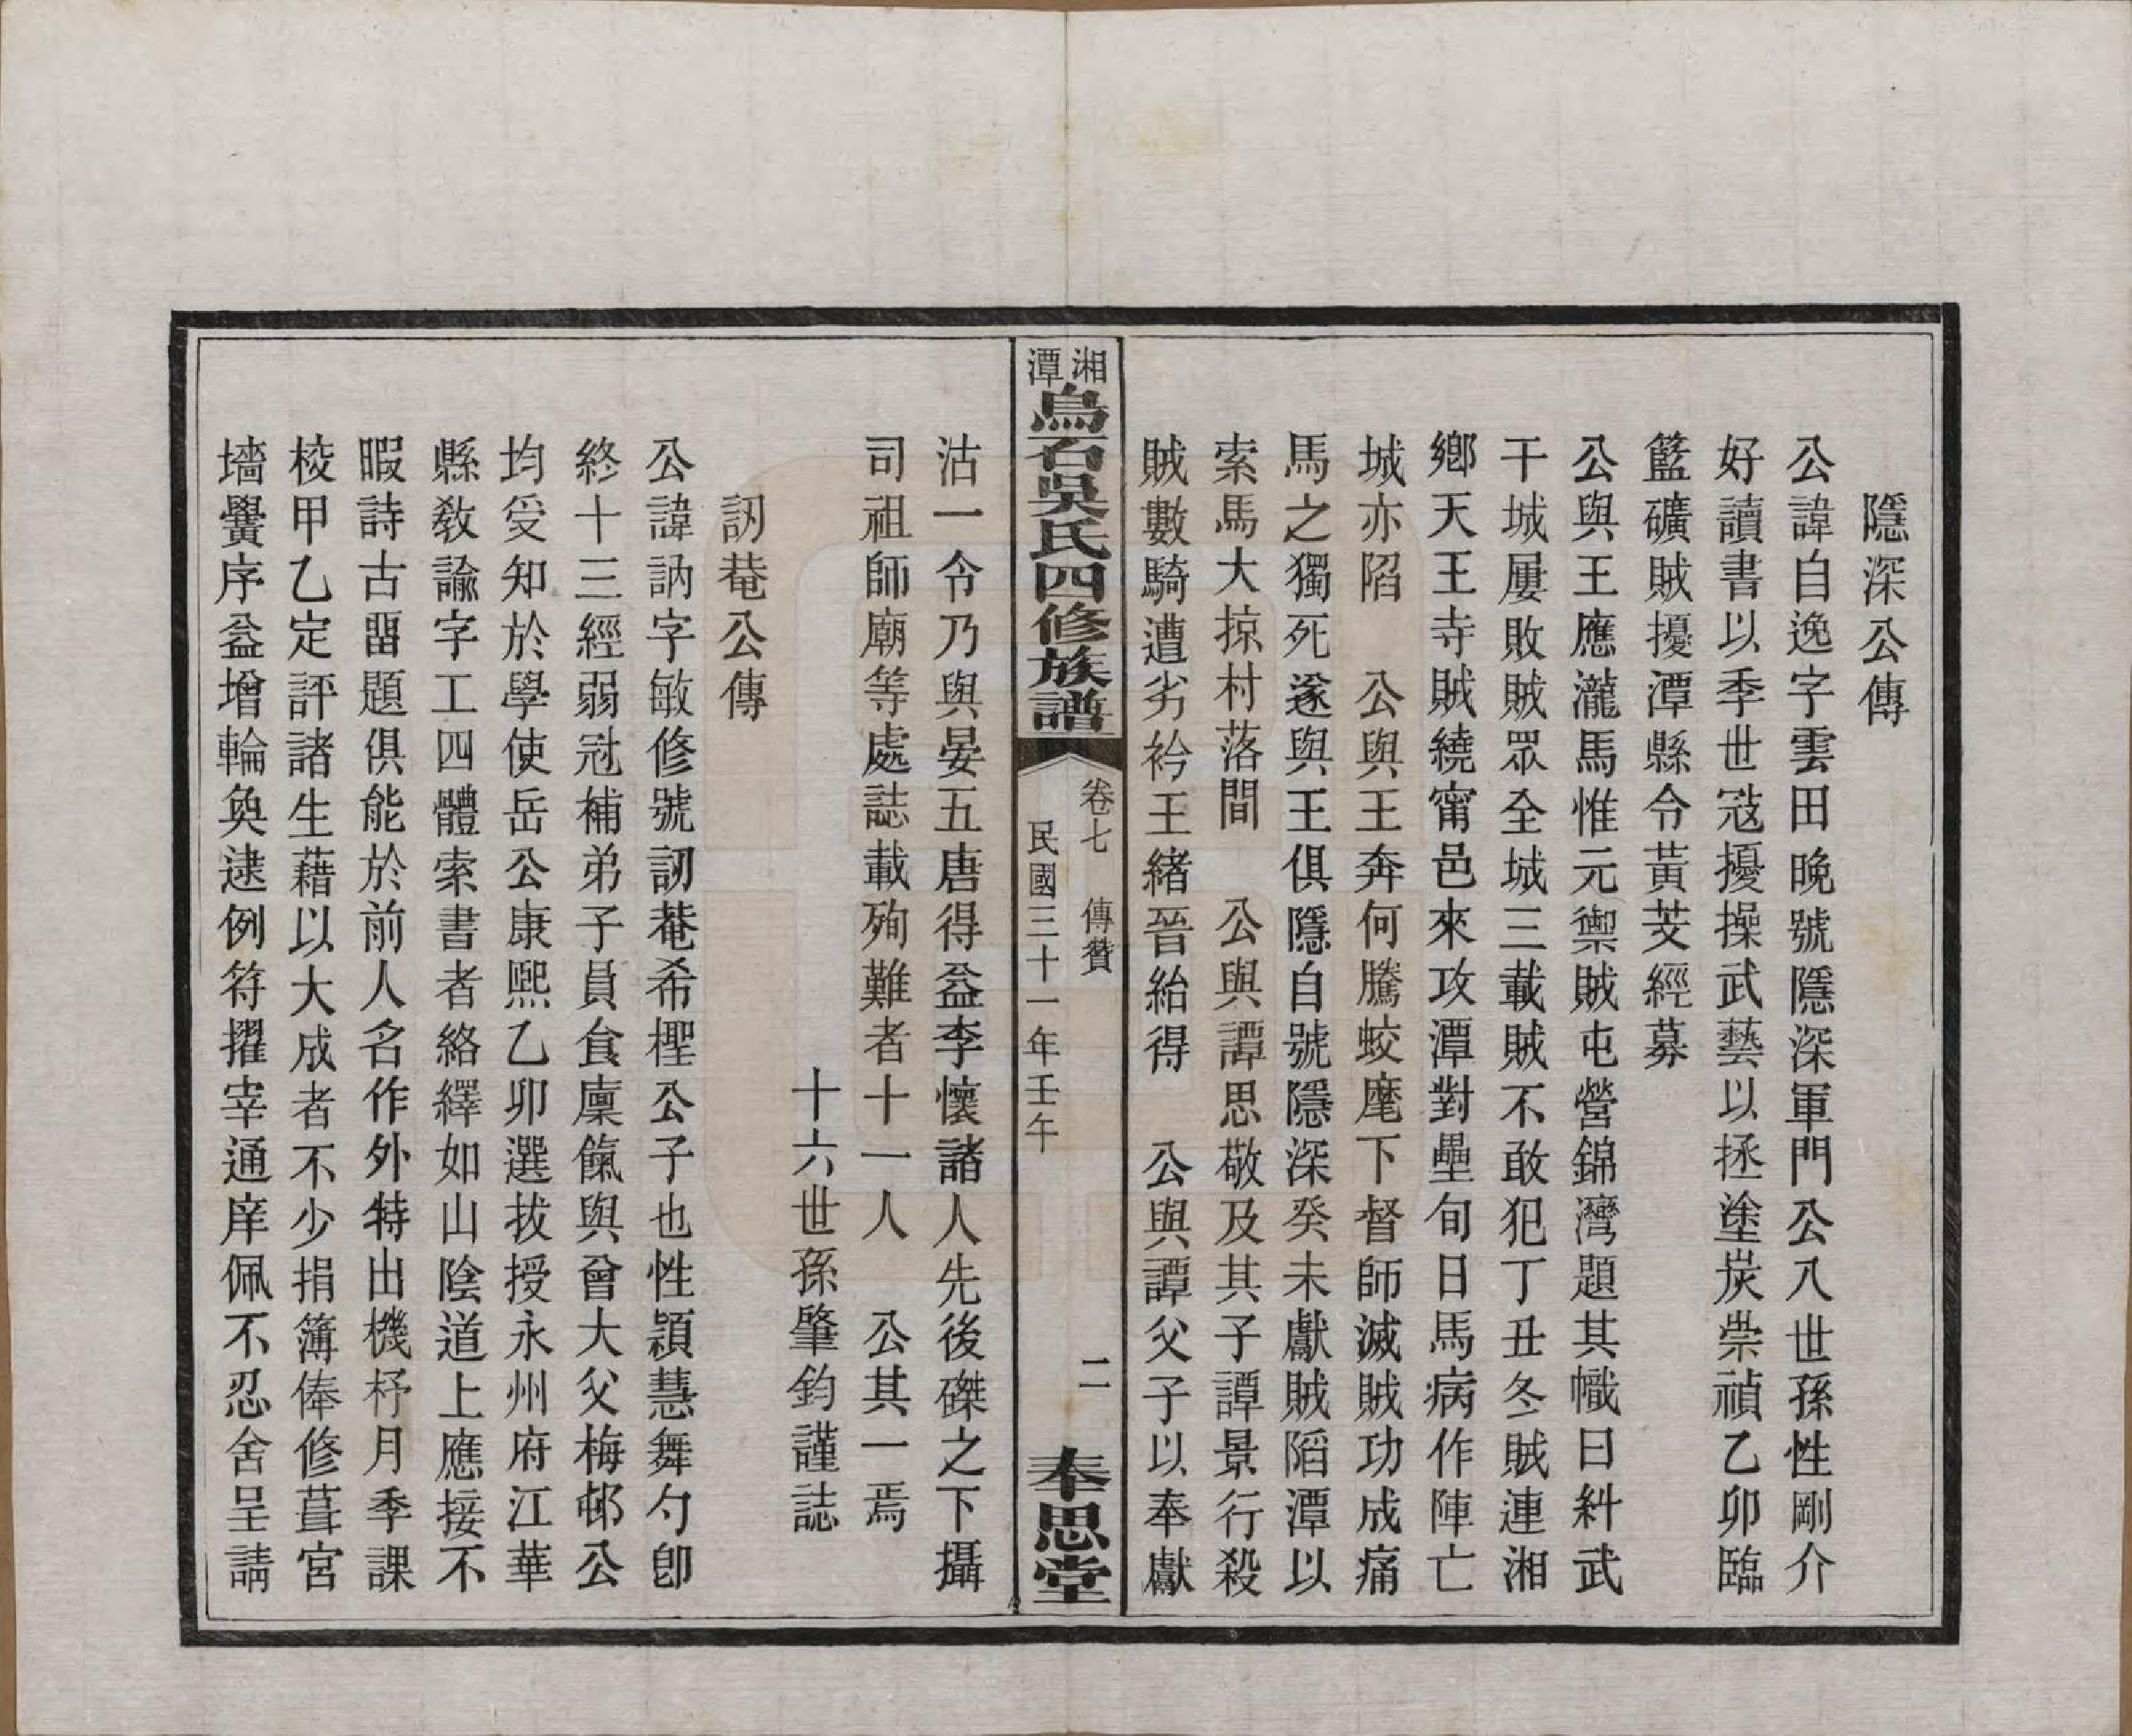 隱深公傳
公諱自逸字雲田晚號隱深軍門公八世孫性剛介
好讀書以季世冦擾操武藝以拯塗炭崇禎乙卯臨
籃礦賊擾潭縣令黃芠經募
公與王應瀧馬惟元禦賊屯營錦灣題其幟曰糾武
干城屢敗賊眾全城三載賊不敢犯丁丑冬賊連湘
鄉天王寺賊繞甯邑來攻潭對壘旬日馬病作陣亡
城亦陷　公與王奔何騰蛟麾下督師滅賊功成痛
馬之獨死遂與王俱隱自號隱深癸未獻賊陷潭以
索馬大掠村落間　公與譚思敬及其子譚景行殺
賊數騎遭劣衿王緒晉紿得　公與譚父子以奉獻
湘潭烏石吳氏四修族譜　卷七　傳贊　民國三十一年壬午　二　奉思堂
沽一令乃與晏五唐得益李懷諸人先後磔之下攝
司祖師廟等處誌載殉難者十一人　公其一焉
十六世孫肇鈞謹誌
訒菴公傳
公諱訥字敏修號訒菴希檉公子也性穎慧舞勺卽
終十三經弱冠補弟子員食廩餼與曾大父梅邨公
均受知於學使岳公康熙乙卯選拔授永州府江華
縣敎諭字工四體索書者絡繹如山陰道上應接不
暇詩古畱題俱能於前人名作外特出機杼月季課
棱甲乙定評諸生藉以大成者不少捐簿俸修葺宮
墻黌序益增輪奐逮例符擢宰通庠佩不忍舍呈請